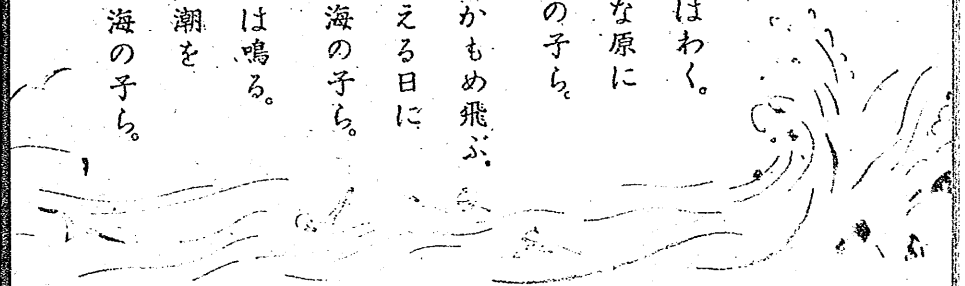 はわく。
な原に
の子ら。
かもめ飛ぶ。
える日に
海の子ら。
は鳴る。
潮を
海の子ら。